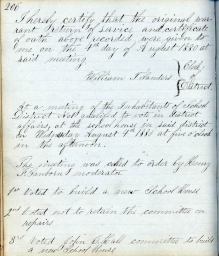 206
I hereby certify that the original war-
rant return of service and certificate
of oath above recorded were given to
me on the 4th day of August 1880 at
said meeting
William J Sanders } Clerk
of
District
At a meeting of the Inhabitants of School
District No 1 qualified to vote in district
affairs, at the school house in said district
on Wednesday August 4th 1880 at five o'clock
in the afternoon.
The meeting was called to order by Henry
Sanborn moderator
1st Voted to build a new School House
2nd Voted not to retain the committee on
repairs
3rd Voted John committee to build
a new School House